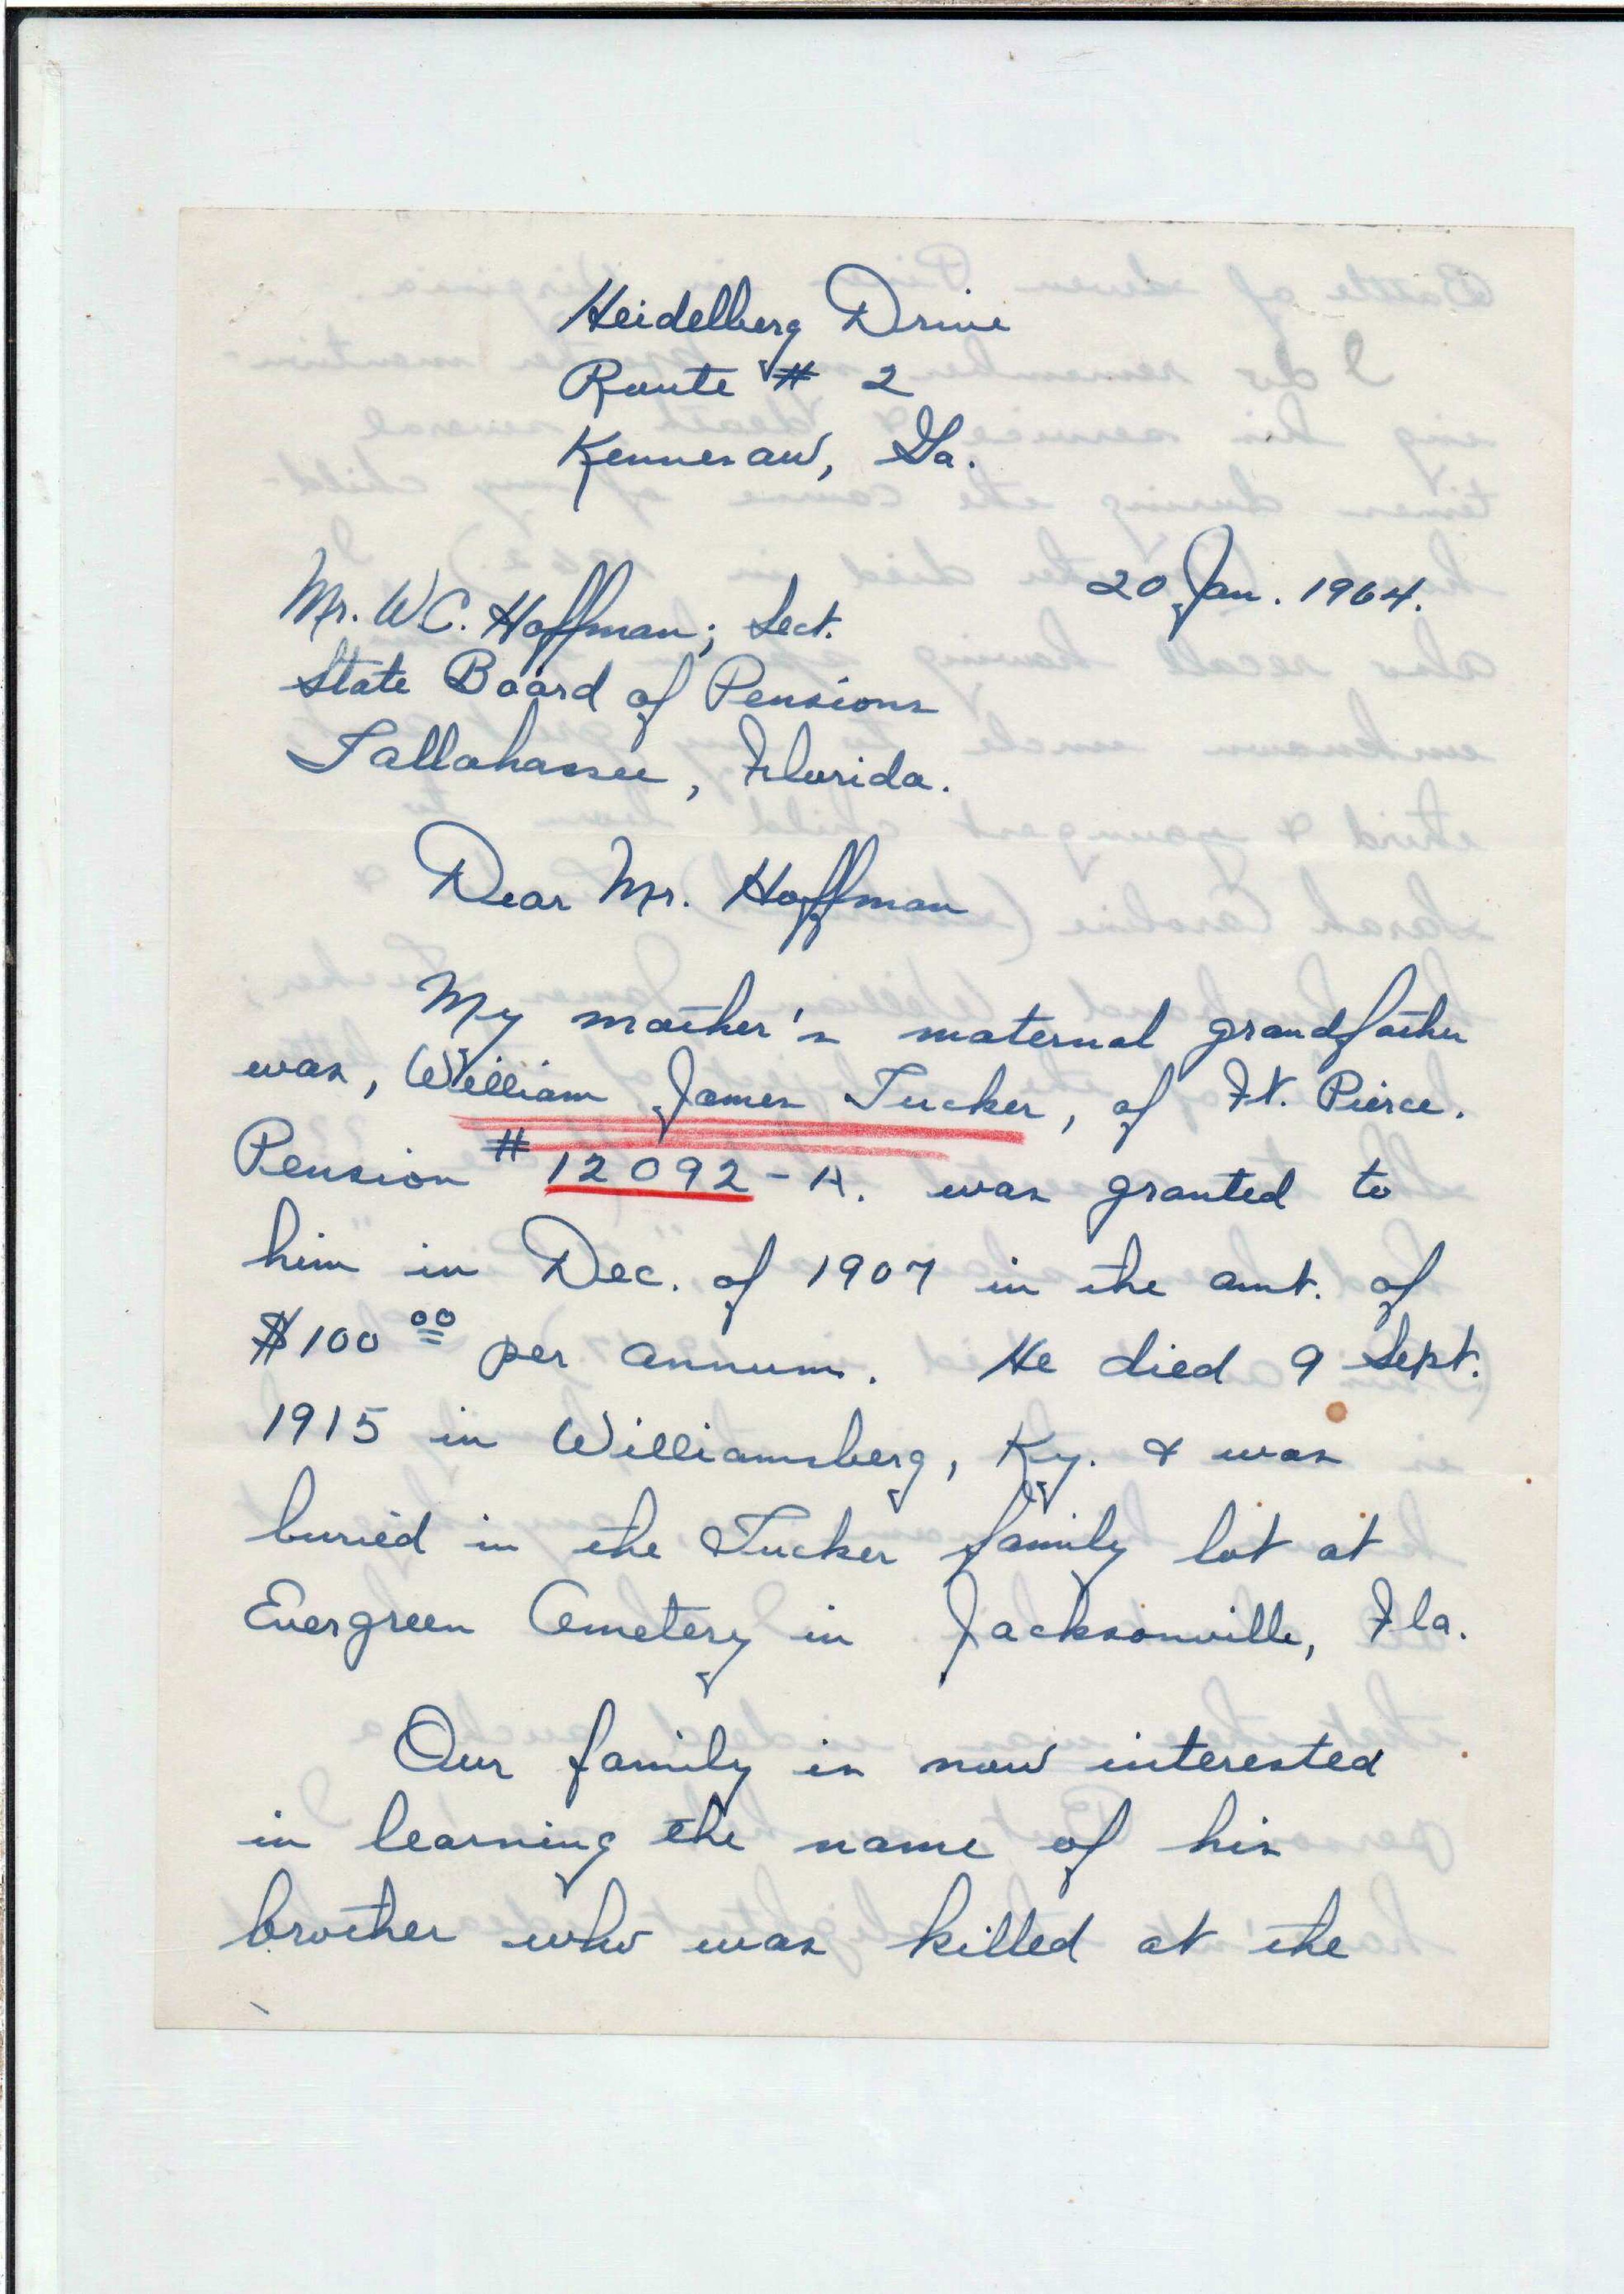 Heidelberg Drive
Route # 2
Kennesaw, Ga.
20 Jan. 1964.
Mr. W.C. Hoffman; Sect.
State Board of Pensions
Tallahassee, Florida.
Dear Mr. Hoffman
My mother's maternal grandfather
was, William James Tucker, of Ft. Pierce.
Pension # 12092-A. was granted to
him in Dec. of 1907 in the amt. of
$100 00 per annum. He died 9 Sept.
1915 in Williamsberg, Ky. & was
buried in the Tucker family lot at
Evergreen Cemetery in Jacksonville, Fla.
Our family is now interested
in learning the name of his
brother who was killed at the